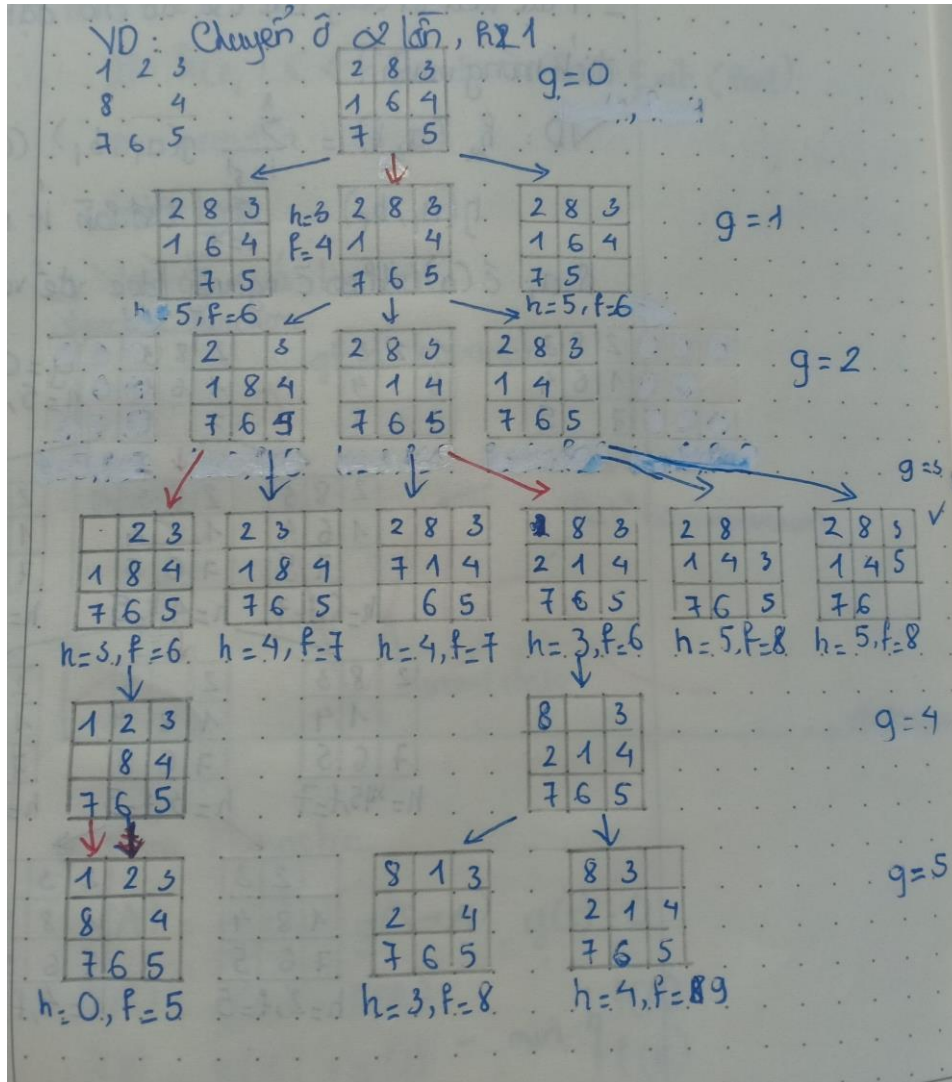 VD: Chuyển ô 2 lần, h≥1
1 2 3
8 4
7 6 5
2 8 3
1 6 4
7 5
g=0
2 8 3
1 6 4
7 5
h=5, f=6
h=3
f=4
2 8 3
1 4
7 6 5
2 8 3
1 6 4
7 5
h=5, f=6
g=1
2 3
1 8 4
7 6 5
2 8 3
1 4
7 6 5
2 8 3
1 4
7 6 5
g=2
g=3
2 3
1 8 4
7 6 5
h=3, f=6
2 3
1 8 4
7 6 5
h=4, f=7
2 8 3
7 1 4
6 5
h=4, f=7
8 3
2 1 4
7 6 5
h=3, f=6
2 8
1 4 3
7 6 5
h=5, f=8
2 8 3
1 4 5
7 6
h=5, f=8
✓
1 2 3
8 4
7 6 5
8 3
2 1 4
7 6 5
g=4
1 2 3
8 4
7 6 5
h=0, f=5
8 1 3
2 4
7 6 5
h=3, f=8
8 3
2 1 4
7 6 5
h=4, f=9
g=5